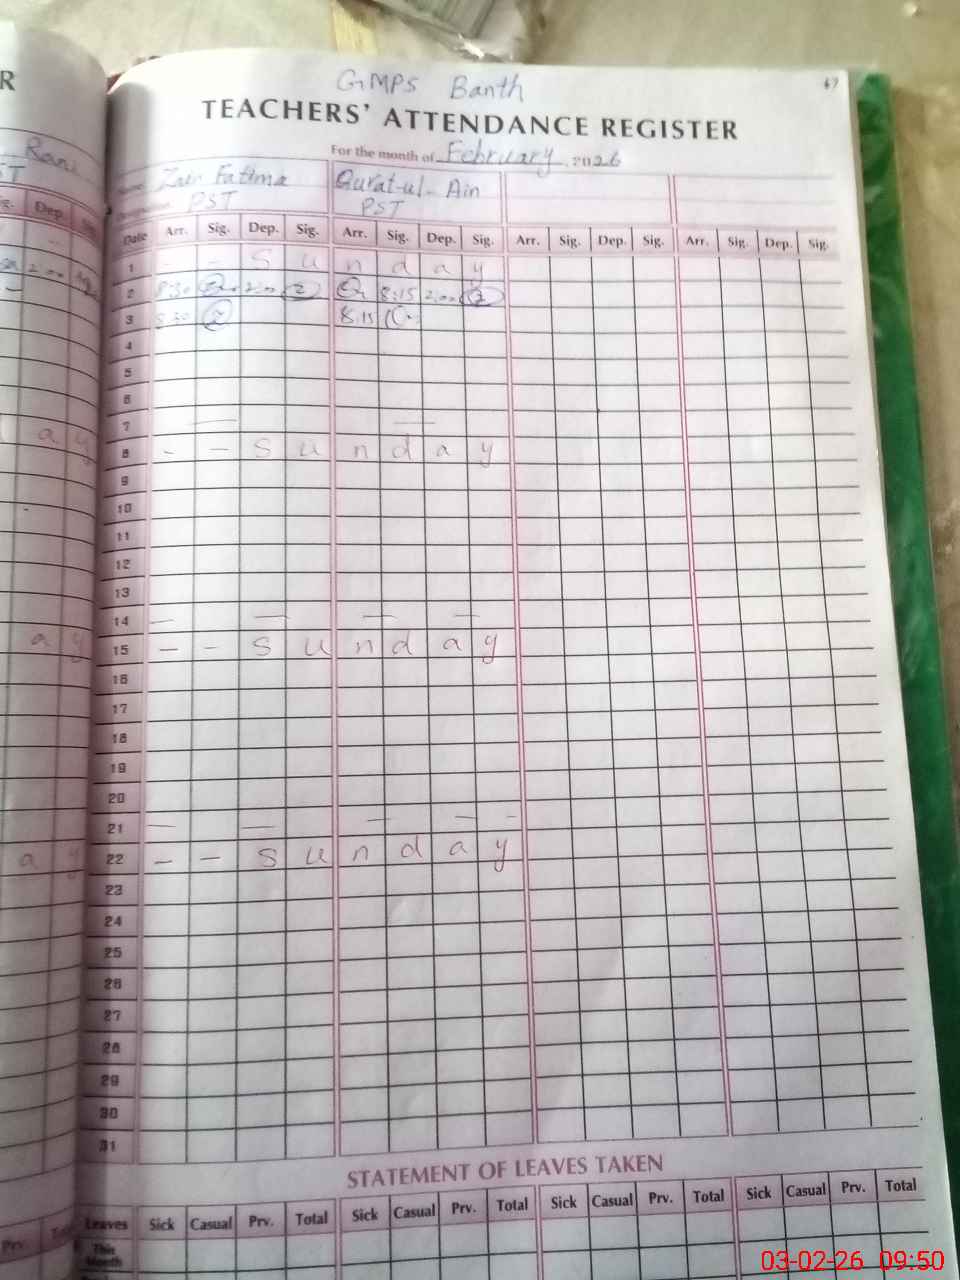 R
GMPS Banth
67
TEACHERS' ATTENDANCE REGISTER
For the month of February 2026
Rani
Name Zain Fatima Qurat-ul-Ain
Designation PST PST
Dep.
Date Arr. Sig. Dep. Sig. Arr. Sig. Dep. Sig. Arr. Sig. Dep. Sig. Arr. Sig. Dep. Sig.
1 - - S u n d a y
2 8:30 2:00 8:15 2:00
3 8:30 8:15
4
5
6
7 — —
a y 8 - - S u n d a y
9
10
11
12
13
14 — — — —
a y 15 - - S u n d a y
16
17
18
19
20
21 — — — — -
a y 22 - - S u n d a y
23
24
25
26
27
28
29
30
31
STATEMENT OF LEAVES TAKEN
Prv. Leaves Sick Casual Prv. Total Sick Casual Prv. Total Sick Casual Prv. Total Sick Casual Prv. Total
This Month
03-02-26 09:50